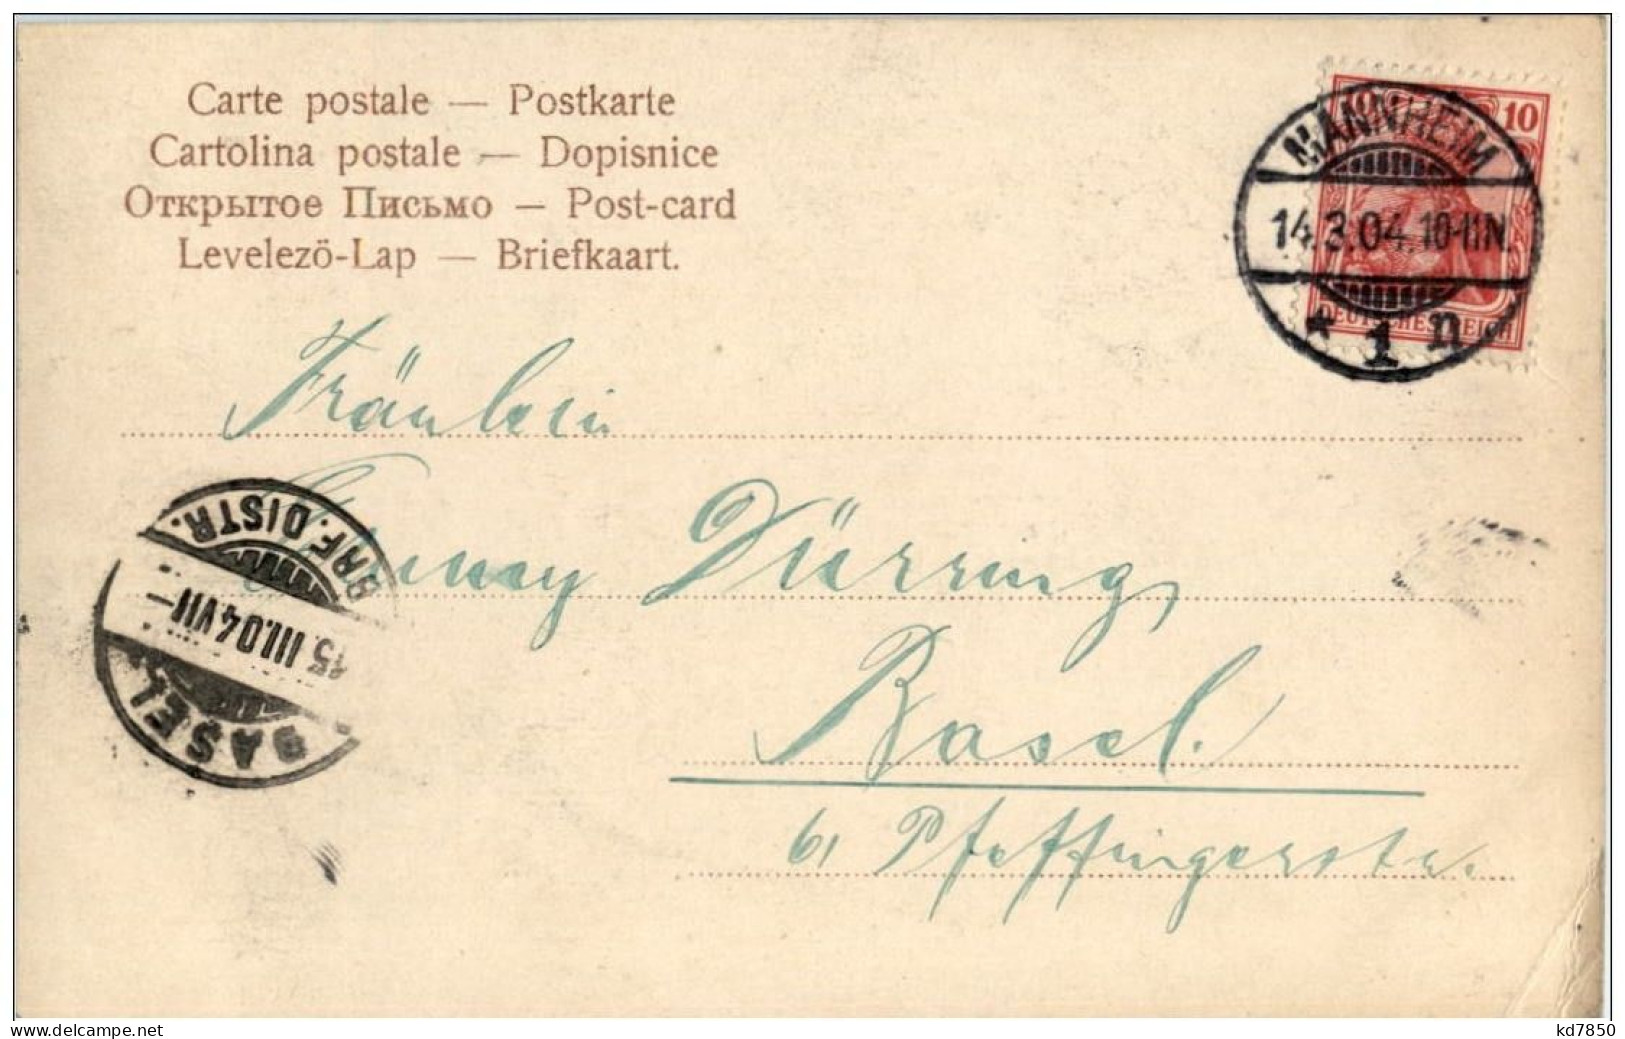 Carte postale — Postkarte
Cartolina postale — Dopisnice
Открытое Письмо — Post-card
Levelező-Lap — Briefkaart.
10 10
DEUTSCHES REICH
MANNHEIM
14.3.04.10-11N.
* 1 n
Fräulein
Dürring,
Basel.
61 Pfeffingerstr.
BRF. DISTR.
15.III.04 VII—
BASEL
www.delcampe.net
kd7850